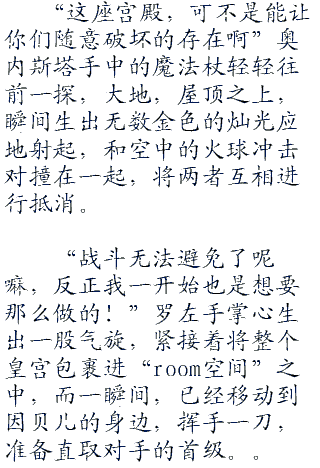 “这座宫殿，可不是能让
你们随意破坏的存在啊”奥
内斯塔手中的魔法杖轻轻往
前一探，大地，屋顶之上，
瞬间生出无数金色的灿光应
地射起，和空中的火球冲击
对撞在一起，将两者互相进
行抵消。
“战斗无法避免了呢
嘛，反正我一开始也是想要
那么做的！”罗左手掌心生
出一股气旋，紧接着将整个
皇宫包裹进“room空间”之
中，而一瞬间，已经移动到
因贝儿的身边，挥手一刀，
准备直取对手的首级。。